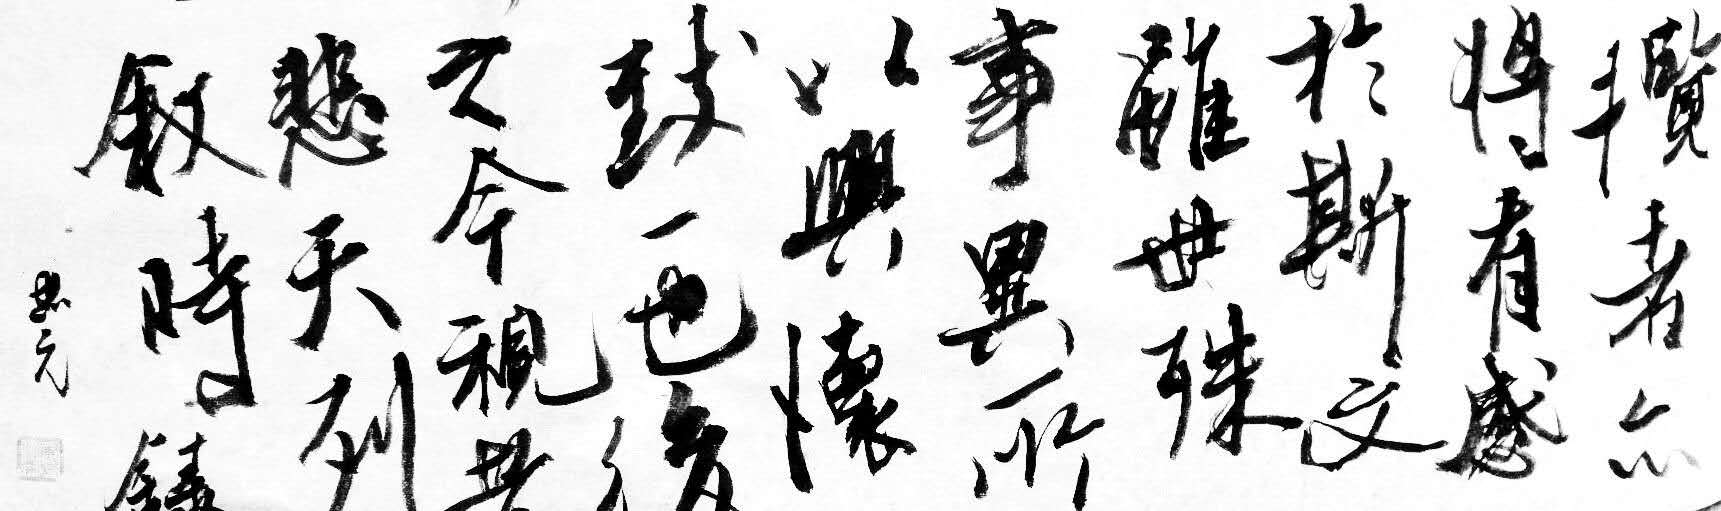 攬者亦
將有感
於斯文
雖世殊
事異所
以興懷
致一也後
之今視昔
悲夫列
叙時錄